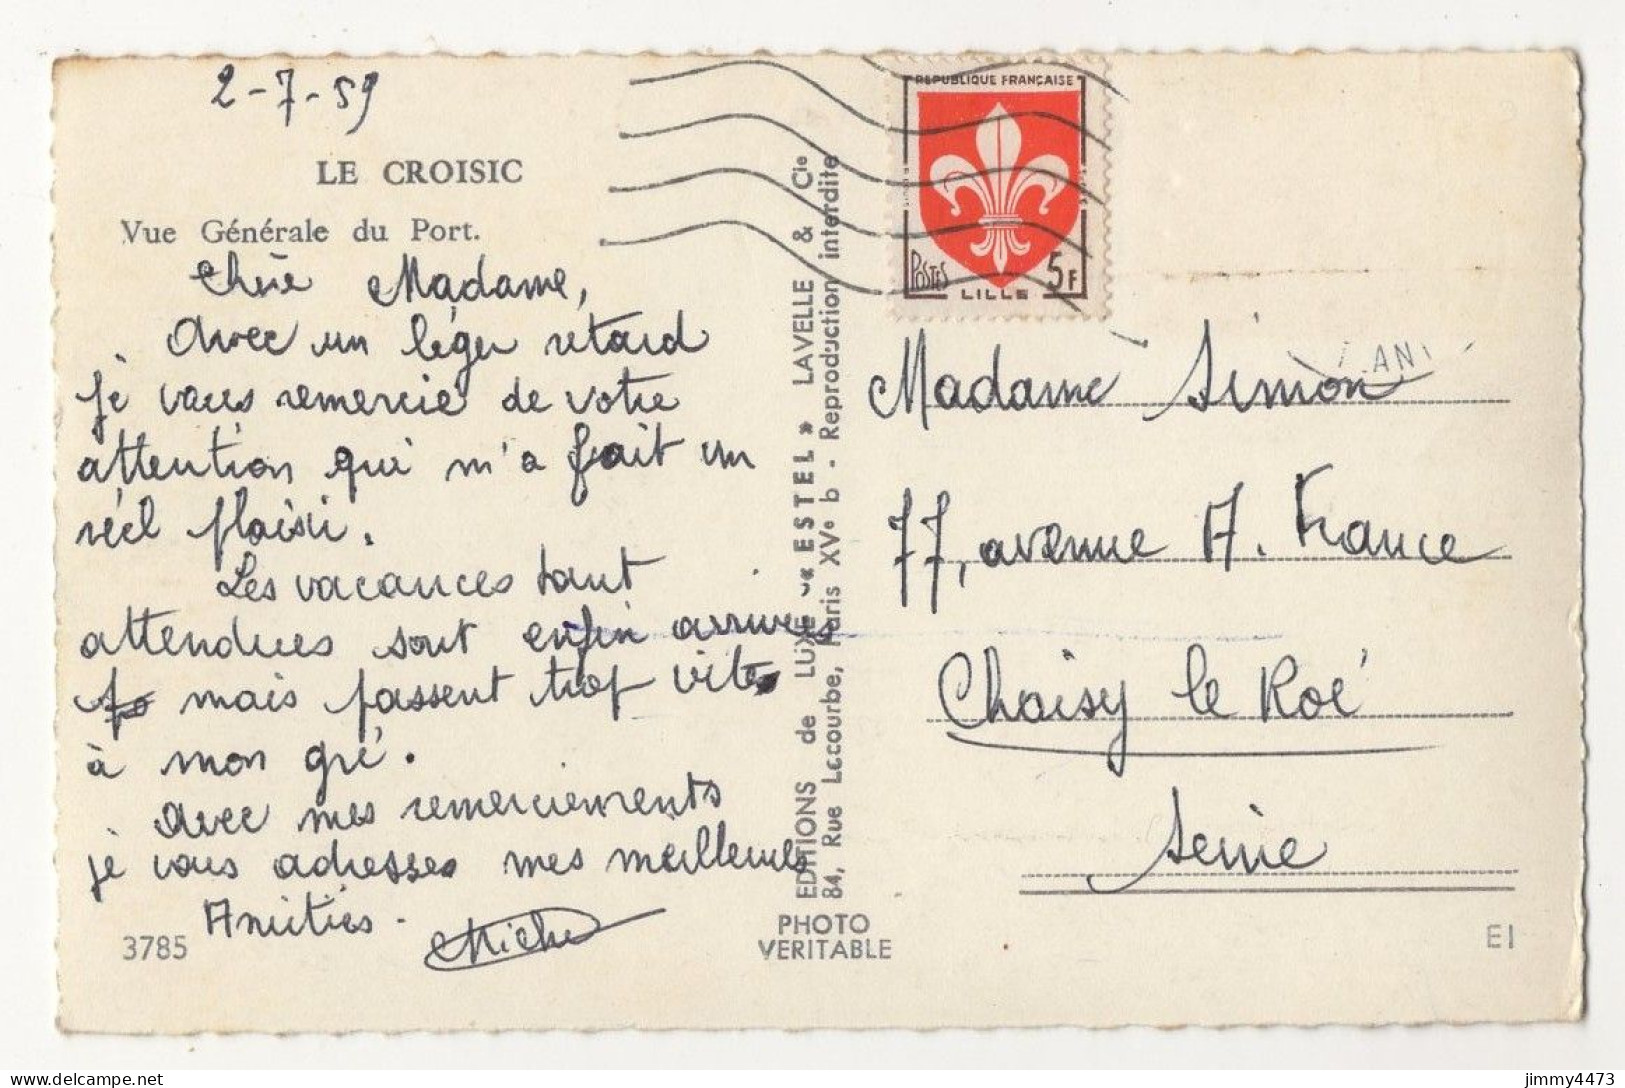 2-7-59
LE CROISIC
Vue Générale du Port.
Chère Madame,
Avec un léger retard
je vous remercie de votre
attention qui m'a fait un
réel plaisir.
Les vacances tant
attendues sont enfin arrivées
mais passent trop vite
à mon gré.
Avec mes remerciements
je vous adresse mes meilleures
Amitiés.
3785
EDITIONS de LUXE "« ESTEL » LAVELLE & Cie
84, Rue Lecourbe, Paris XVe b - Reproduction interdite
PHOTO
VERITABLE
REPUBLIQUE FRANÇAISE
POSTES
5F
LILLE
Madame Simon
77, avenue A. France
Choisy le Roi
Seine
EI
jimmy4473
delcampe.net